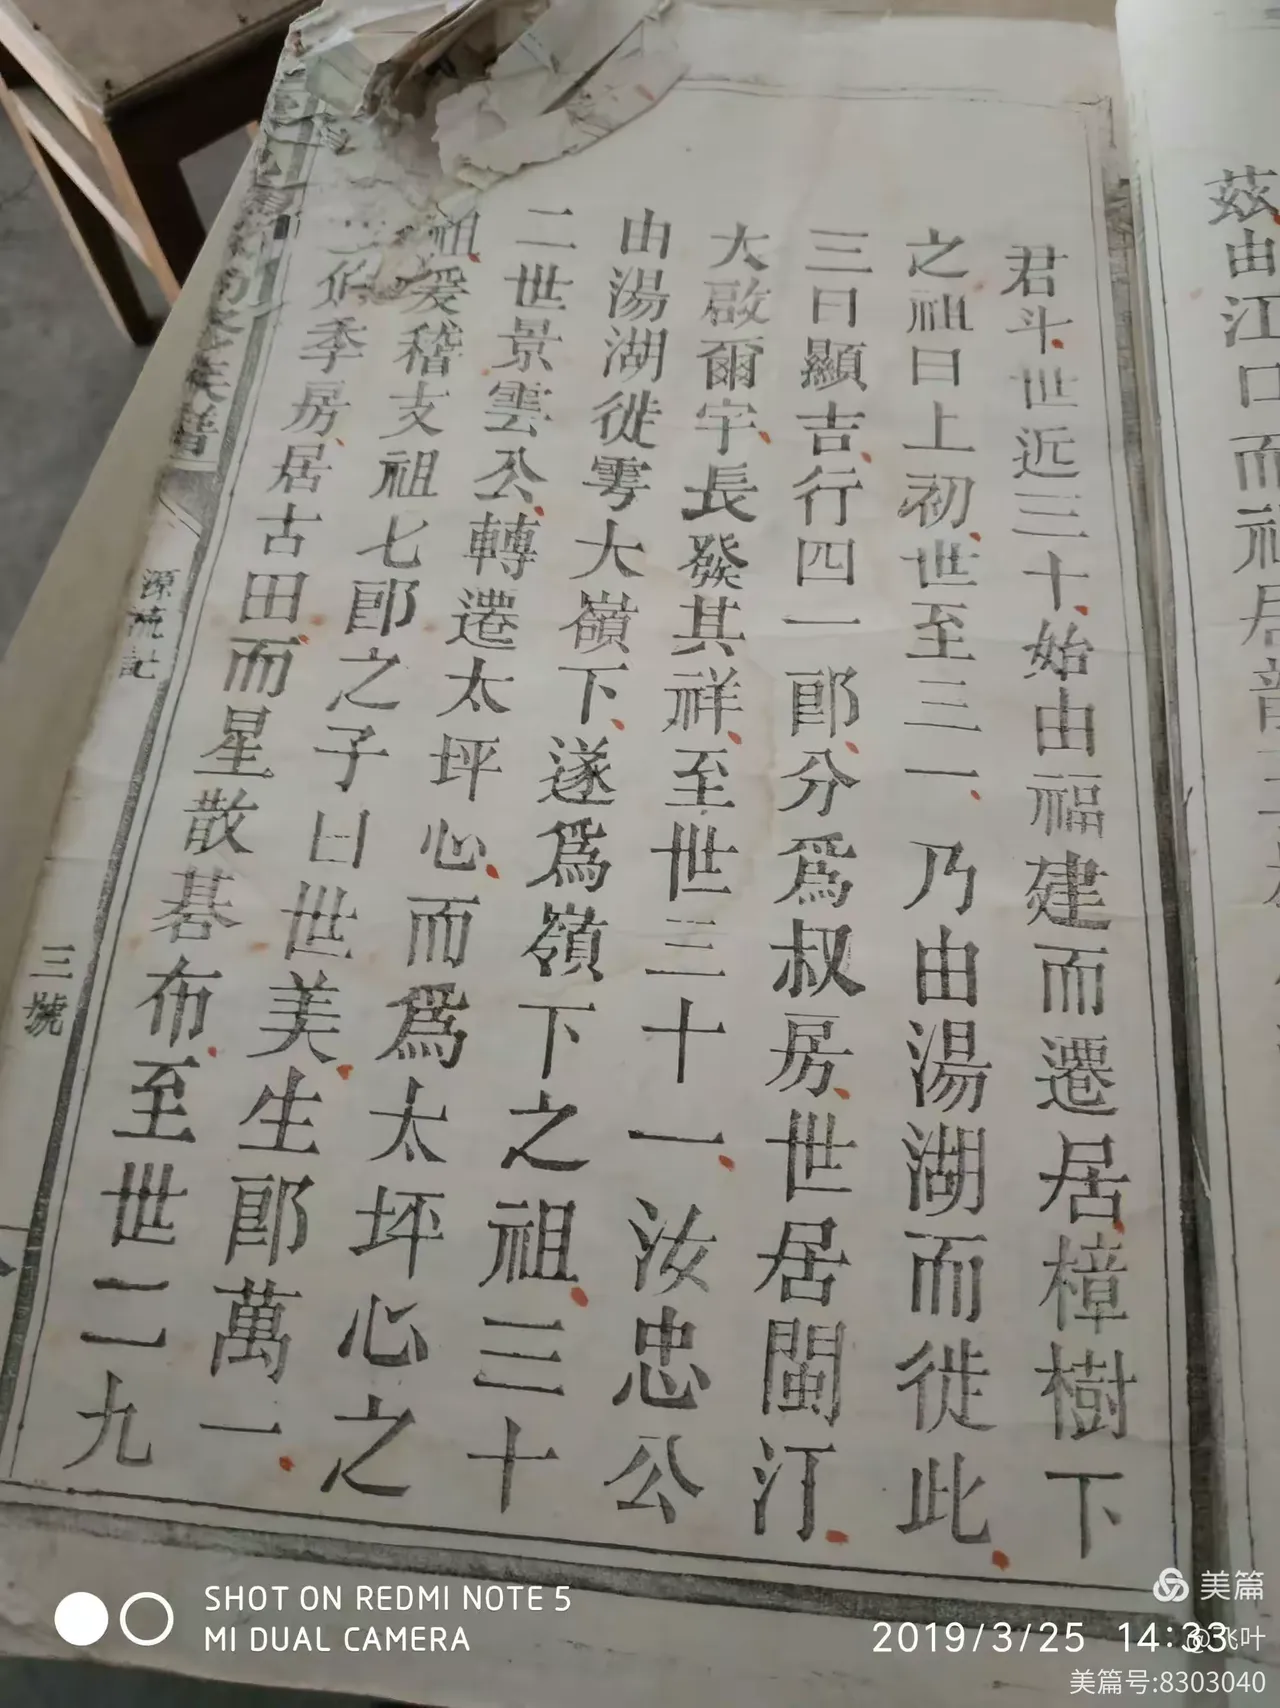 茲由江口而
君斗世近三十始由福建而遷居樟樹下
之祖曰上初世至三一乃由湯湖而徙此
三曰顯吉行四一郎分爲叔房世居閩汀
大啟爾宇長發其祥至世三十一汝忠公
由湯湖徙雩大嶺下遂爲嶺下之祖三十
二世景雲公轉遷太坪心而爲太坪心之
祖爰稽支祖七郎之子曰世美生郎萬一
季房居古田而星散碁布至世二九
族譜
源流記
三號
SHOT ON REDMI NOTE 5
MI DUAL CAMERA
美篇
2019/3/25 14:33
@飞叶
美篇号:8303040